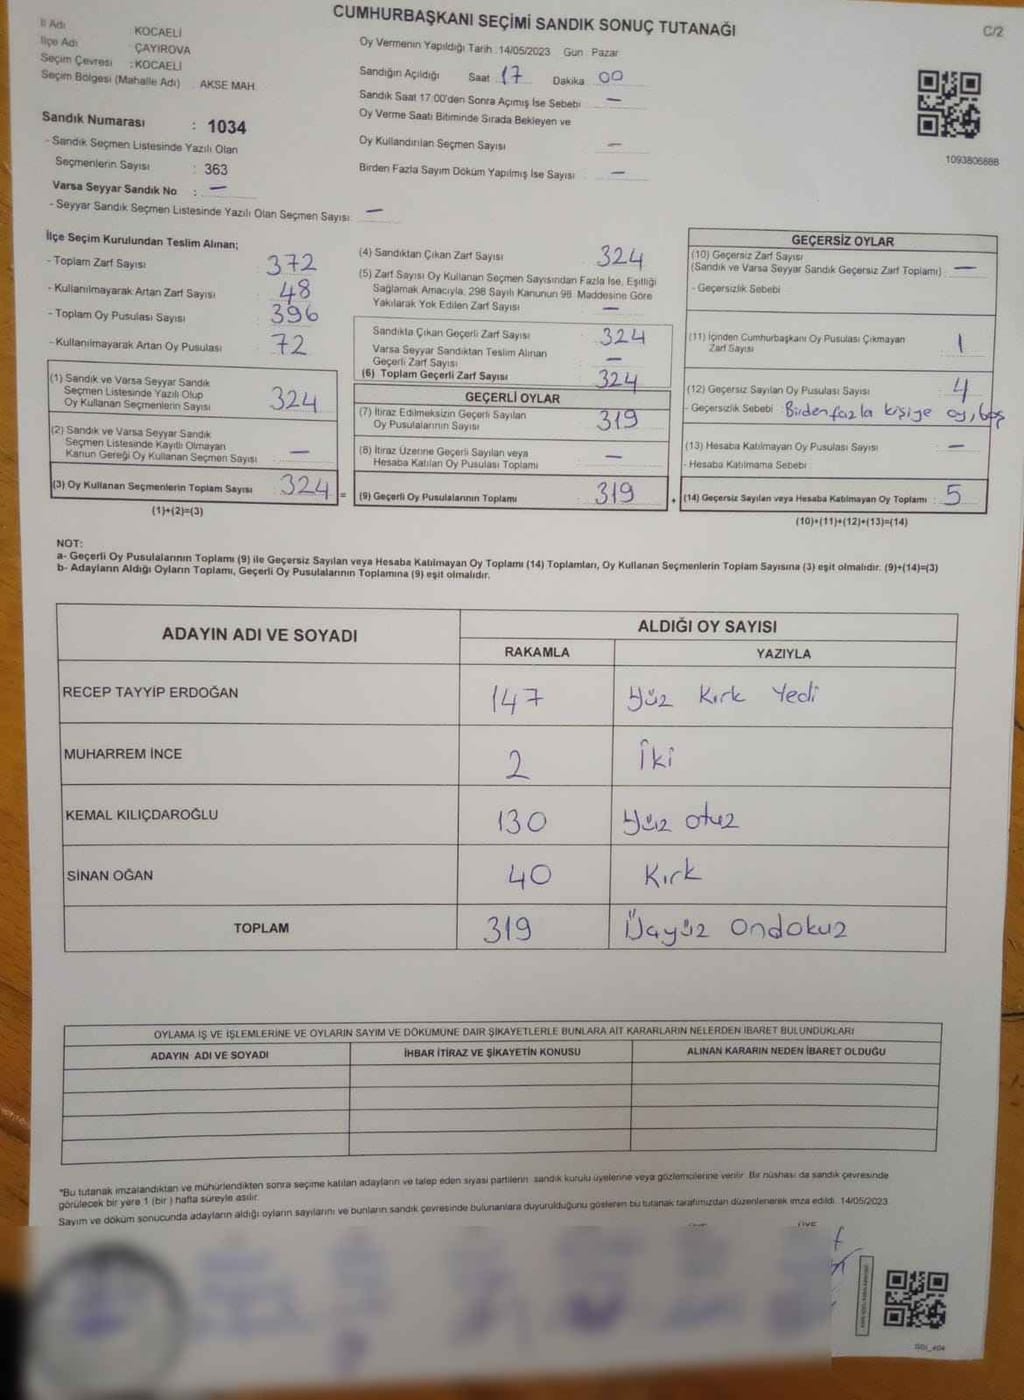 CUMHURBAŞKANI SEÇİMİ SANDIK SONUÇ TUTANAĞI
C/2
İl Adı KOCAELİ
İlçe Adı ÇAYIROVA
Seçim Çevresi : KOCAELİ
Seçim Bölgesi (Mahalle Adı) AKSE MAH.
Sandık Numarası : 1034
- Sandık Seçmen Listesinde Yazılı Olan
Seçmenlerin Sayısı : 363
Varsa Seyyar Sandık No : —
- Seyyar Sandık Seçmen Listesinde Yazılı Olan Seçmen Sayısı: —
Oy Vermenin Yapıldığı Tarih :14/05/2023 Gün : Pazar
Sandığın Açıldığı Saat 17 Dakika 00
Sandık Saat 17:00'den Sonra Açımış İse Sebebi —
Oy Verme Saati Bitiminde Sırada Bekleyen ve
Oy Kullandırılan Seçmen Sayısı —
Birden Fazla Sayım Döküm Yapılmış İse Sayısı —
1093806888
İlçe Seçim Kurulundan Teslim Alınan;
- Toplam Zarf Sayısı : 372
- Kullanılmayarak Artan Zarf Sayısı : 48
- Toplam Oy Pusulası Sayısı : 396
- Kullanılmayarak Artan Oy Pusulası : 72
(1) Sandık ve Varsa Seyyar Sandık
Seçmen Listesinde Yazılı Olup
Oy Kullanan Seçmenlerin Sayısı : 324
(2) Sandık ve Varsa Seyyar Sandık
Seçmen Listesinde Kayıtlı Olmayan
Kanun Gereği Oy Kullanan Seçmen Sayısı : —
(3) Oy Kullanan Seçmenlerin Toplam Sayısı : 324 =
(1)+(2)=(3)
(4) Sandıktan Çıkan Zarf Sayısı 324
(5) Zarf Sayısı Oy Kullanan Seçmen Sayısından Fazla İse, Eşitliği
Sağlamak Amacıyla, 298 Sayılı Kanunun 98. Maddesine Göre
Yakılarak Yok Edilen Zarf Sayısı : —
Sandıkta Çıkan Geçerli Zarf Sayısı : 324
Varsa Seyyar Sandıktan Teslim Alınan
Geçerli Zarf Sayısı : —
(6) Toplam Geçerli Zarf Sayısı : 324
GEÇERLİ OYLAR
(7) İtiraz Edilmeksizin Geçerli Sayılan
Oy Pusulalarının Sayısı : 319
(8) İtiraz Üzerine Geçerli Sayılan veya
Hesaba Katılan Oy Pusulası Toplamı : —
(9) Geçerli Oy Pusulalarının Toplamı : 319 +
GEÇERSİZ OYLAR
(10) Geçersiz Zarf Sayısı
(Sandık ve Varsa Seyyar Sandık Geçersiz Zarf Toplamı) : —
- Geçersizlik Sebebi :
(11) İçinden Cumhurbaşkanı Oy Pusulası Çıkmayan
Zarf Sayısı : 1
(12) Geçersiz Sayılan Oy Pusulası Sayısı : 4
- Geçersizlik Sebebi : Birden fazla kişiye oy, boş
(13) Hesaba Katılmayan Oy Pusulası Sayısı : —
- Hesaba Katılmama Sebebi :
(14) Geçersiz Sayılan veya Hesaba Katılmayan Oy Toplamı : 5
(10)+(11)+(12)+(13)=(14)
NOT:
a- Geçerli Oy Pusulalarının Toplamı (9) ile Geçersiz Sayılan veya Hesaba Katılmayan Oy Toplamı (14) Toplamları, Oy Kullanan Seçmenlerin Toplam Sayısına (3) eşit olmalıdır. (9)+(14)=(3)
b- Adayların Aldığı Oyların Toplamı, Geçerli Oy Pusulalarının Toplamına (9) eşit olmalıdır.
ADAYIN ADI VE SOYADI ALDIĞI OY SAYISI
RAKAMLA YAZIYLA
RECEP TAYYİP ERDOĞAN 147 Yüz Kırk Yedi
MUHARREM İNCE 2 İki
KEMAL KILIÇDAROĞLU 130 Yüz otuz
SİNAN OĞAN 40 Kırk
TOPLAM 319 Üçyüz Ondokuz
OYLAMA İŞ VE İŞLEMLERİNE VE OYLARIN SAYIM VE DÖKÜMÜNE DAİR ŞİKAYETLERLE BUNLARA AİT KARARLARIN NELERDEN İBARET BULUNDUKLARI
ADAYIN ADI VE SOYADI İHBAR İTİRAZ VE ŞİKAYETİN KONUSU ALINAN KARARIN NEDEN İBARET OLDUĞU
*Bu tutanak imzalandıktan ve mühürlendikten sonra seçime katılan adayların ve talep eden siyasi partilerin sandık kurulu üyelerine veya gözlemcilerine verilir. Bir nüshası da sandık çevresinde
görülecek bir yere 1 (bir ) hafta süreyle asılır.
Sayım ve döküm sonucunda adayların aldığı oyların sayılarını ve bunların sandık çevresinde bulunanlara duyurulduğunu gösteren bu tutanak tarafımızdan düzenlenerek imza edildi. 14/05/2023